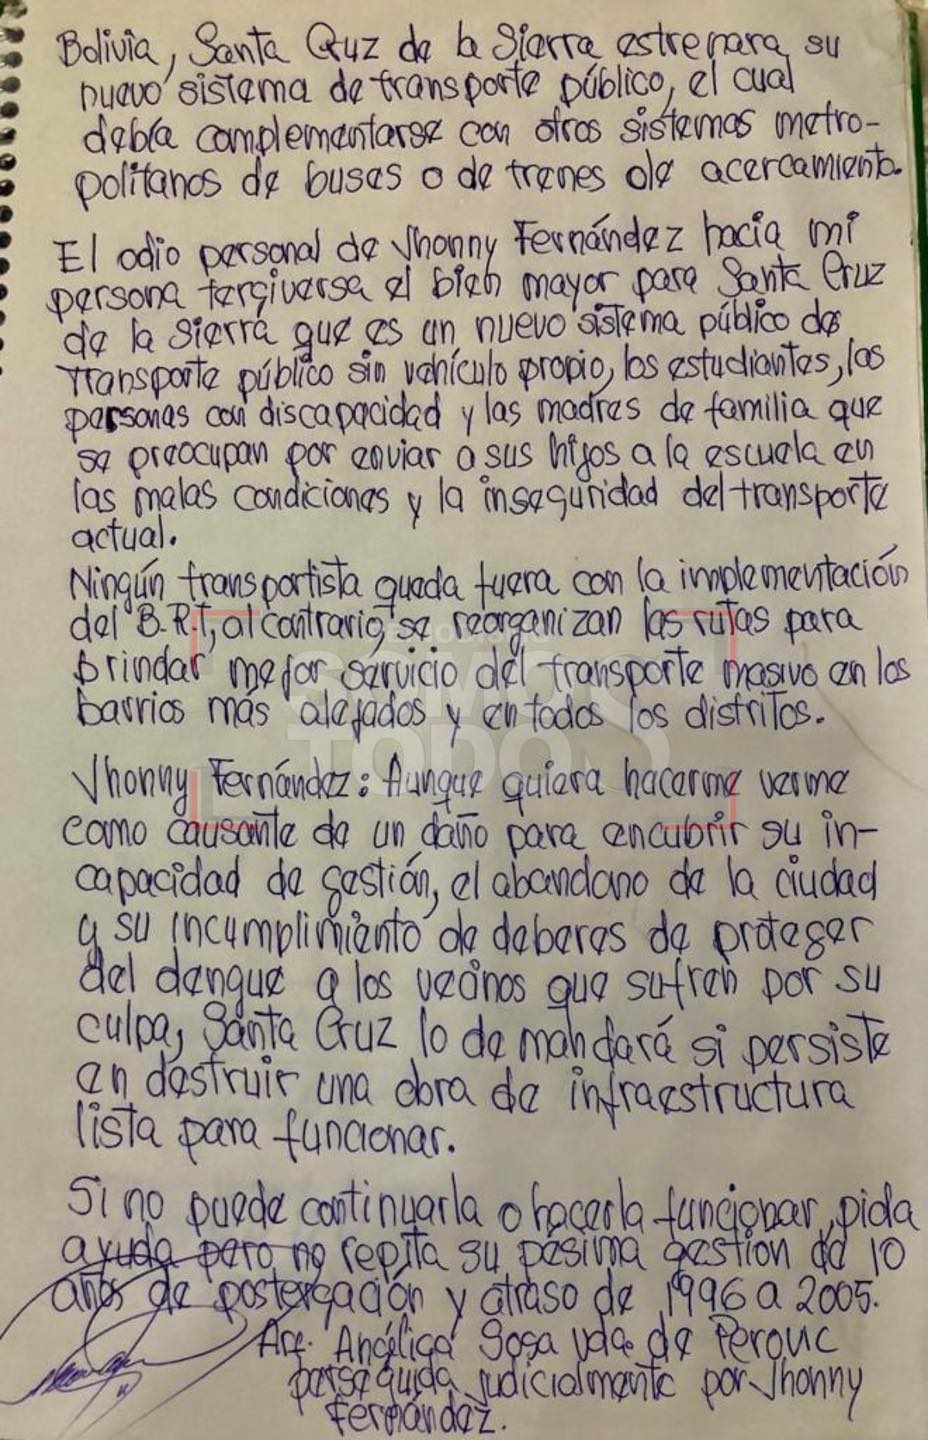 Bolivia, Santa Cruz de la Sierra estrenara su
nuevo sistema de transporte público, el cual
debía complementarse con otros sistemas metro-
politanos de buses o de trenes de acercamiento.
El odio personal de Jhonny Fernández hacia mi
persona tergiversa el bien mayor para Santa Cruz
de la Sierra que es un nuevo sistema público de
transporte público sin vehículo propio, los estudiantes, las
personas con discapacidad y las madres de familia que
se preocupan por enviar a sus hijos a la escuela en
las malas condiciones y la inseguridad del transporte
actual.
Ningún transportista queda fuera con la implementación
del B.R.T, al contrario, se reorganizan las rutas para
brindar mejor servicio del transporte masivo en los
barrios más alejados y en todos los distritos.
SOMOS
TODOS
Jhonny Fernández: Aunque quiera hacerme verme
como causante de un daño para encubrir su in-
capacidad de gestión, el abandono de la ciudad
y su incumplimiento de deberes de proteger
del dengue a los vecinos que sufren por su
culpa, Santa Cruz lo demandará si persiste
en destruir una obra de infraestructura
lista para funcionar.
Si no puede continuarla o hacerla funcionar, pida
ayuda pero no repita su pésima gestion de 10
años de postergación y atraso de 1996 a 2005.
Arq. Angélica Sosa Vda. de Perovic
perseguida judicialmente por Jhonny
Fernández.